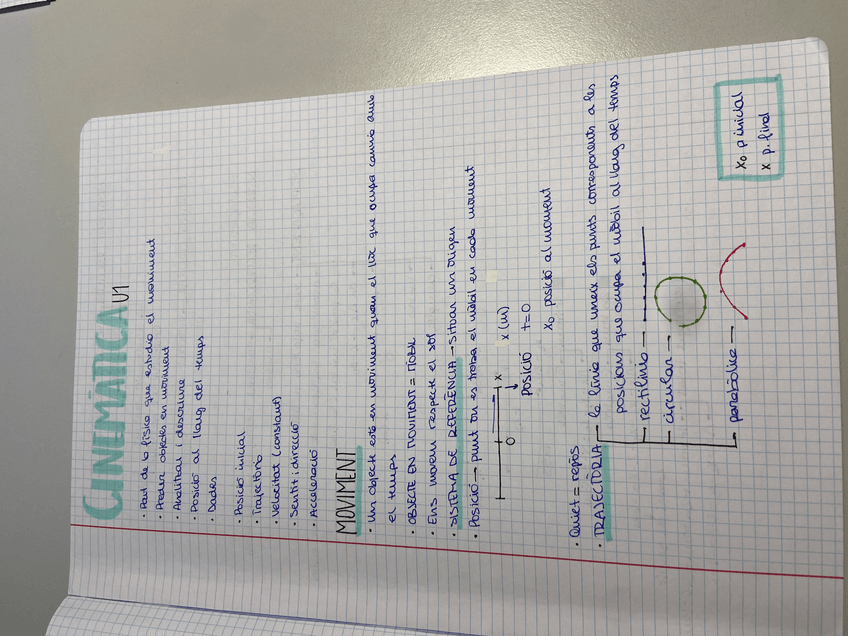 CINEMÀTICA U1
· Part de la física que estudia el moviment
· Predir objectes en moviment
· Analitzar i descriure
· Posició al llarg del temps
· Dades
· Posició inicial
· Trajectòria
· Velocitat (constant)
· Sentit i direcció
· Acceleració
MOVIMENT
· Un objecte està en moviment quan el lloc que ocupa canvia amb
el temps
· OBJECTE EN MOVIMENT = MÒBIL
· Ens movem respecte el sol
· SISTEMA DE REFERÈNCIA → Situar un origen
· Posició → punt on es troba el mòbil en cada moment
0 x x (m)
Posició t=0
x₀ posició al moment
· Quiet = repòs
· TRAJECTÒRIA → la línia que uneix els punts corresponents a les
posicions que ocupa el mòbil al llarg del temps
→ rectilínia →
→ circular →
→ parabòlica →
x₀ p inicial
x p. final